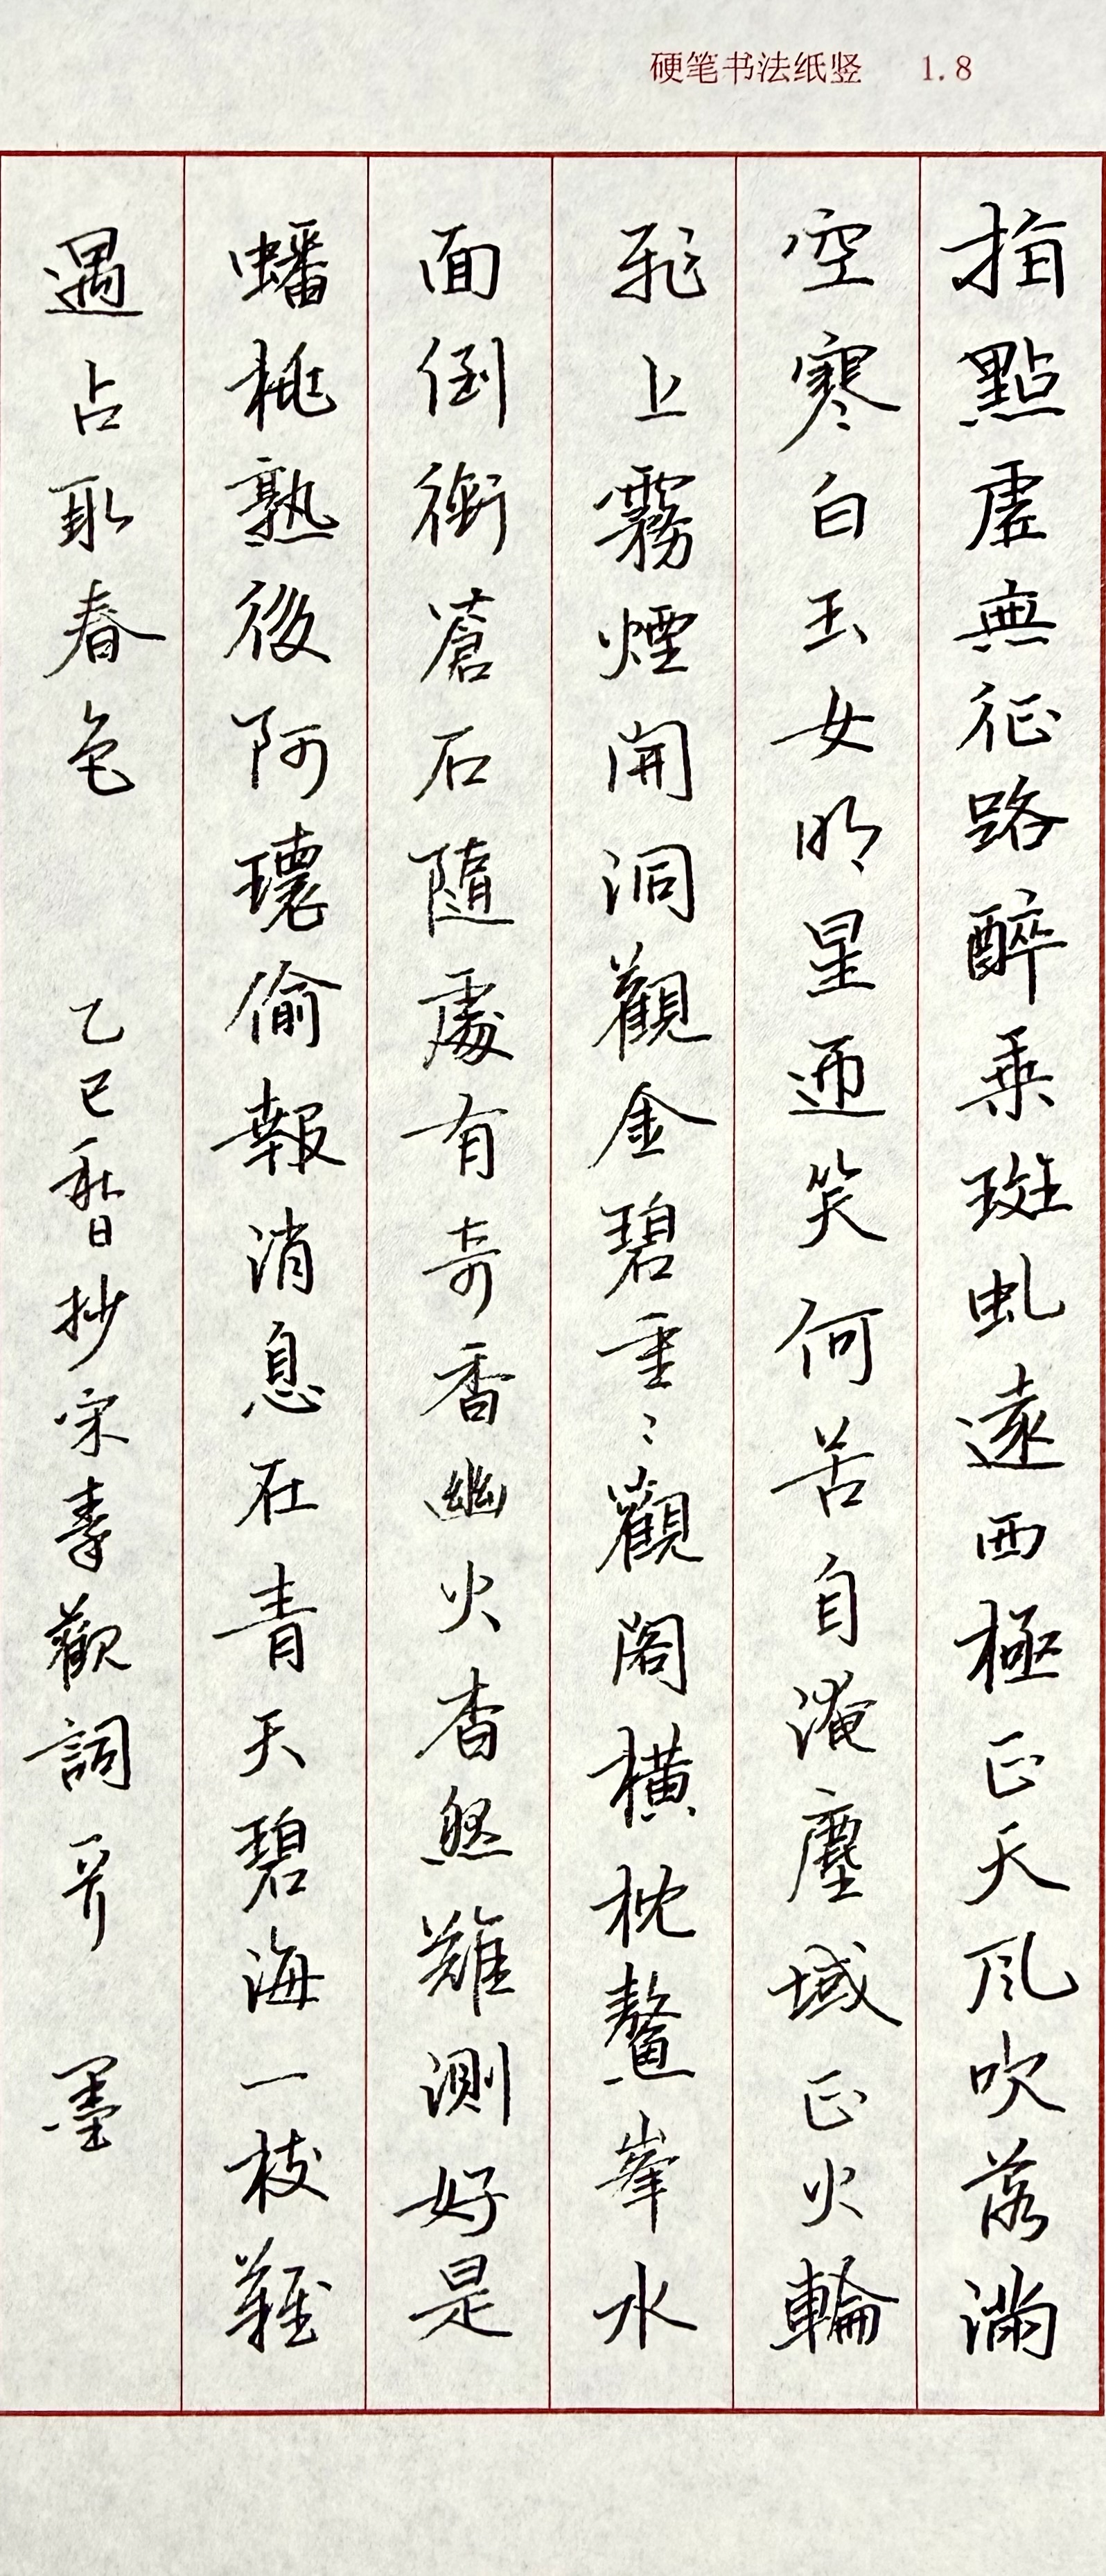 硬笔书法纸竖 1.8
指點虛無征路醉乘斑虬遠西極正天風吹落滿
空寒白玉女明星迎笑何苦自淹塵域正火輪
飛上霧煙開洞觀金碧重〻觀閣橫枕鰲峯水
面倒銜蒼石隨處有奇香幽火杳然難測好是
蟠桃熟後阿環偷報消息在青天碧海一枝難
遇占取春色 乙巳 抄宋李觀詞 墨